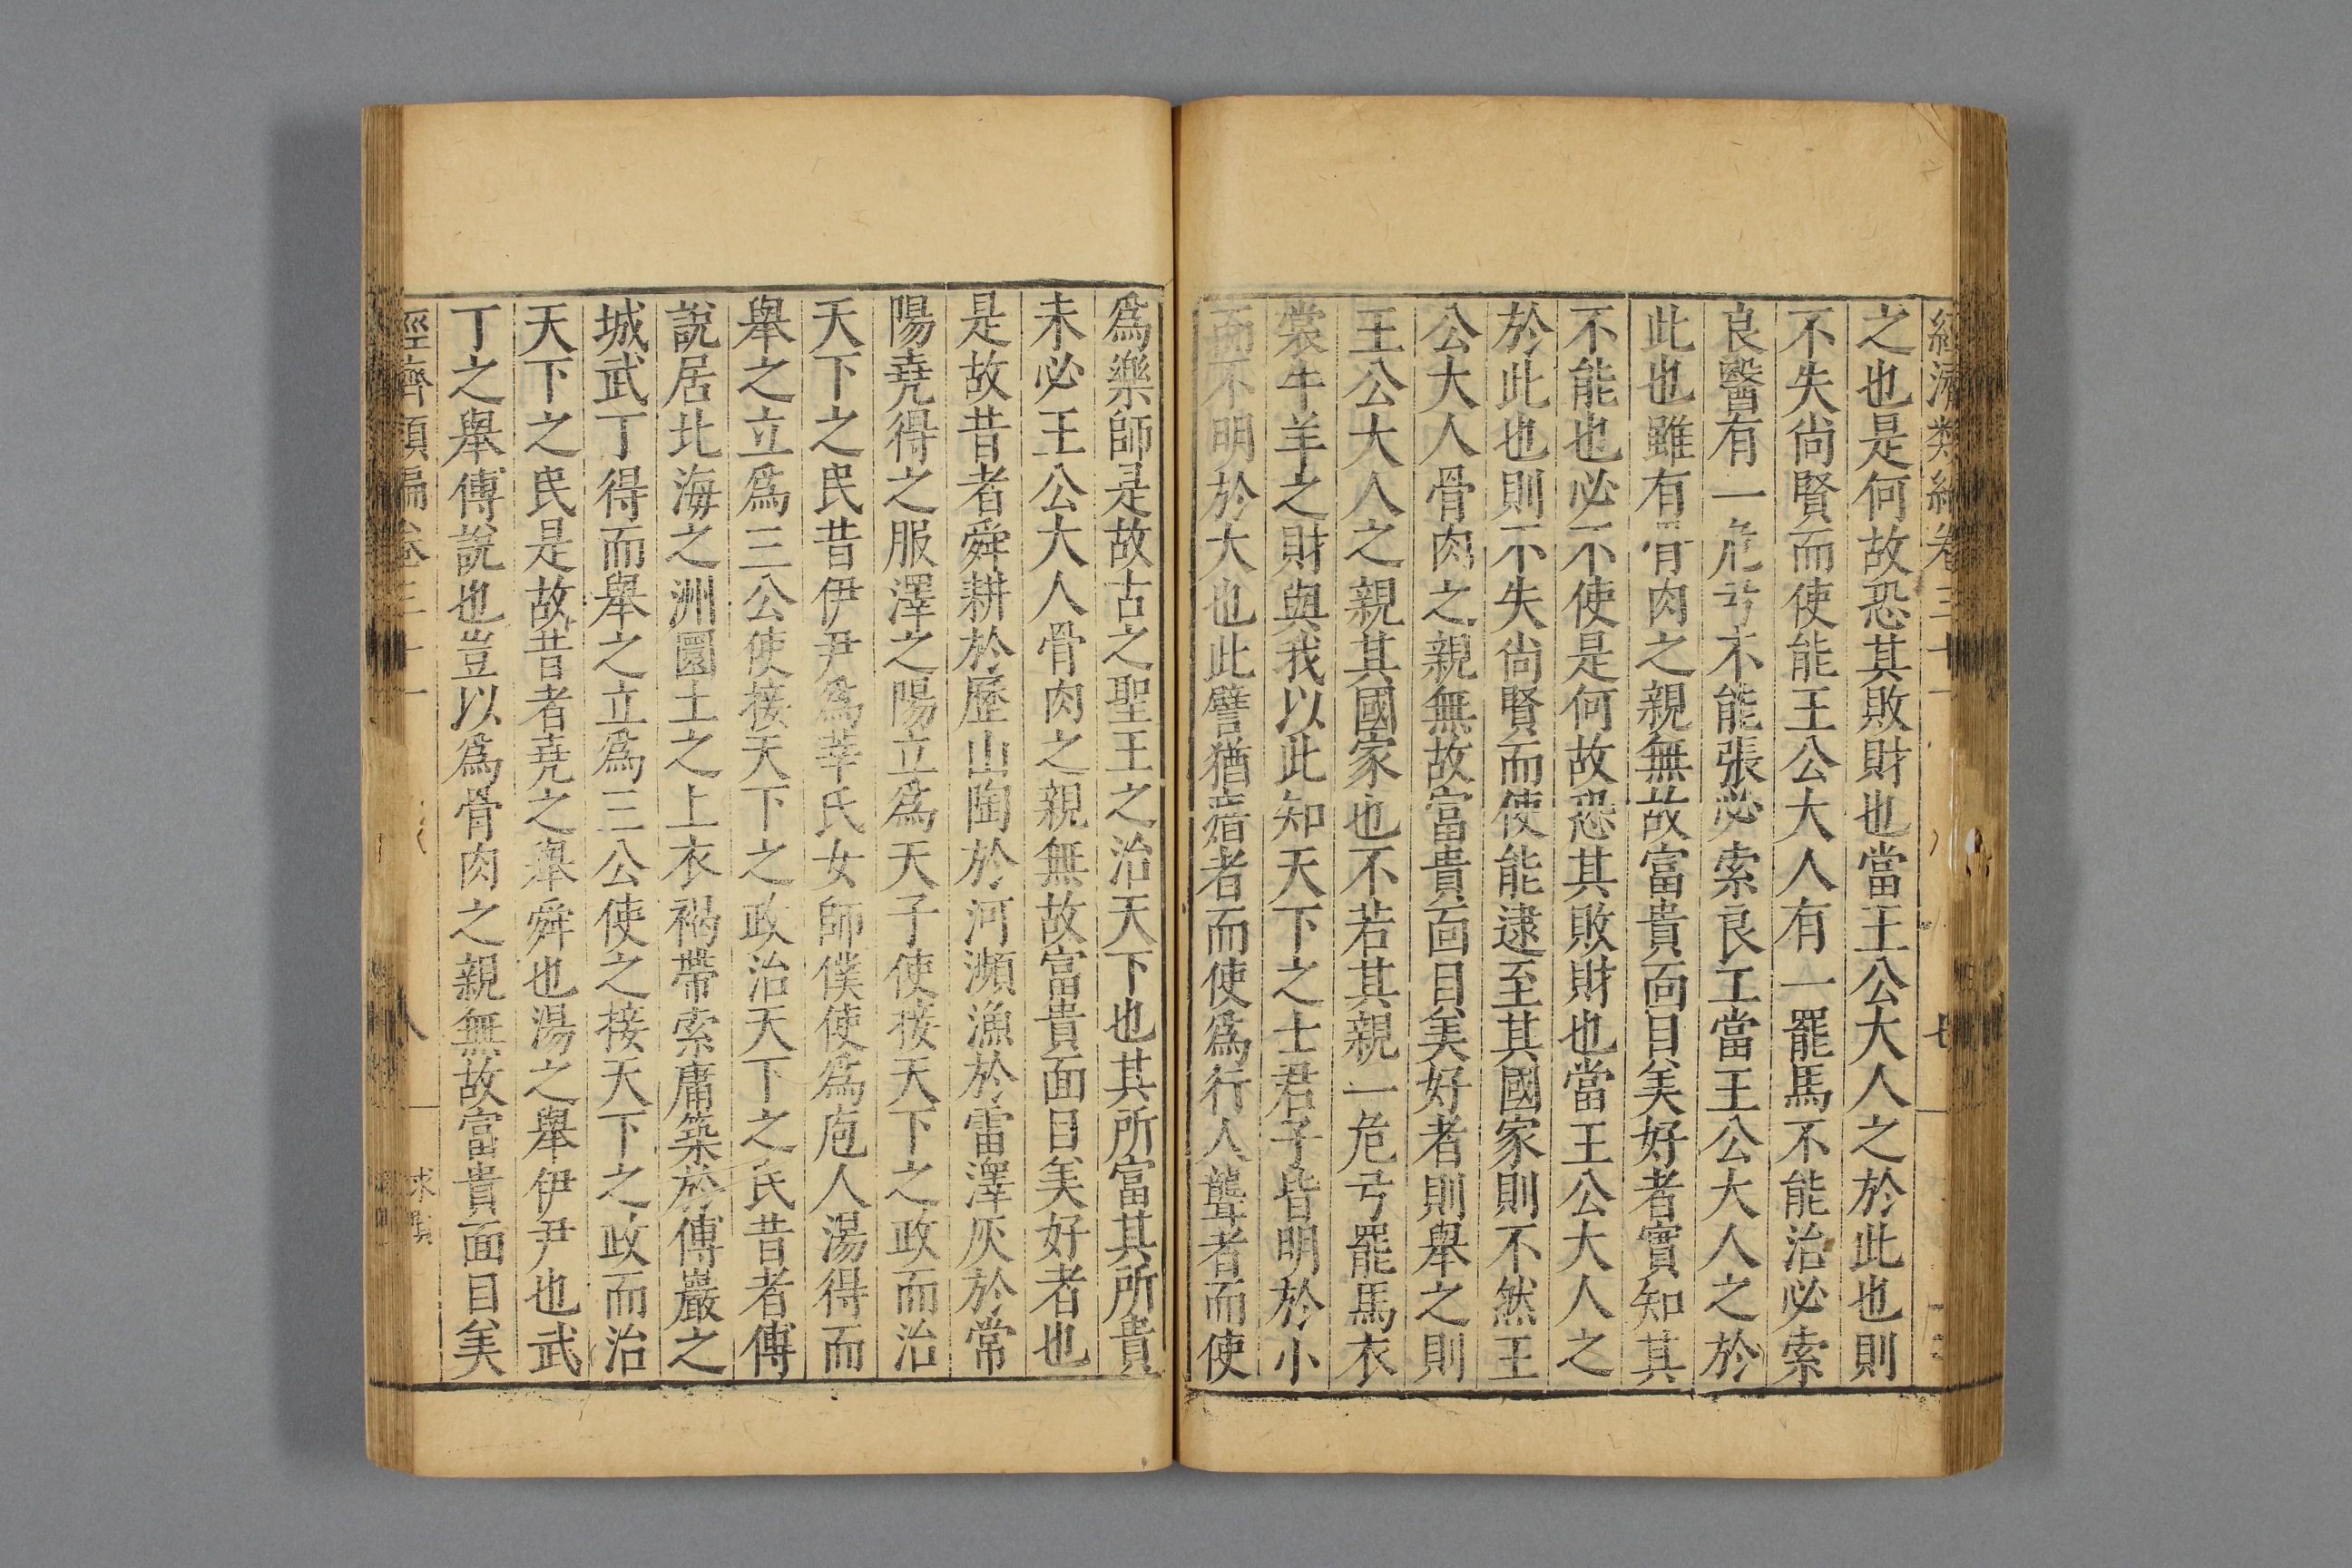 經濟類編卷三十一 七
之也是何故恐其敗財也當王公大人之於此也則
不失尚賢而使能王公大人有一罷馬不能治必索
良醫有一危弓不能張必索良工當王公大人之於
此也雖有骨肉之親無故富貴面目美好者實知其
不能也必不使是何故恐其敗財也當王公大人之
於此也則不失尚賢而使能逮至其國家則不然王
公大人骨肉之親無故富貴面目美好者則舉之則
王公大人之親其國家也不若其親一危弓罷馬衣
裳牛羊之財與我以此知天下之士君子皆明於小
而不明於大也此譬猶瘖者而使爲行人聾者而使
爲樂師是故古之聖王之治天下也其所富其所貴
未必王公大人骨肉之親無故富貴面目美好者也
是故昔者舜耕於歷山陶於河瀕漁於雷澤灰於常
陽堯得之服澤之陽立爲天子使接天下之政而治
天下之民昔伊尹爲莘氏女師僕使爲庖人湯得而
舉之立爲三公使接天下之政治天下之民昔者傅
說居北海之洲圜土之上衣褐帶索庸築於傅巖之
城武丁得而舉之立爲三公使之接天下之政而治
天下之民是故昔者堯之舉舜也湯之舉伊尹也武
丁之舉傅說也豈以爲骨肉之親無故富貴面目美
經濟類編卷三十一 八 求賢